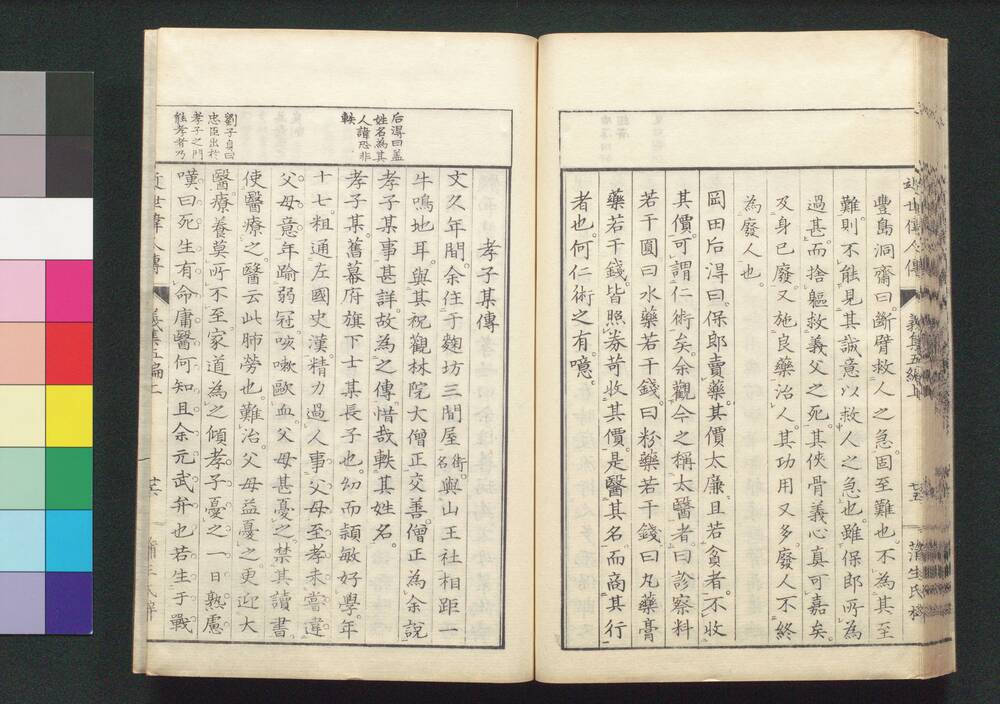 豐島洞齋曰斷臂救人之急固至難也不為其至
難則不能見其誠意以救人之急也雖保郎所為
過甚而捨軀救義父之死其俠骨義心真可嘉矣
及身已廢又施良藥治人其功用又多廢人不終
為廢人也
岡田后淂曰保郎賣藥其價太廉且若貧者不收
其價可謂仁術矣余觀今之稱太醫者曰診察料
若干圓曰水藥若干錢曰粉藥若干錢曰丸藥膏
藥若干錢皆照券苛收其價是醫其名而商其行
者也何仁術之有噫
后淂曰蓋
姓名為其
人諱恐非
軼
劉子身曰
忠臣出於
孝子之門
能孝者乃
孝子某傳
文久年間余住于麴坊三間屋街名與山王社相距一
牛鳴地耳與其祝觀林院大僧正交善僧正為余說
孝子某事甚詳故為之傳惜哉軼其姓名
孝子某舊幕府旗下士某長子也幼而穎敏好學年
十七粗通左國史漢精力過人事父母至孝未嘗違
父母意年踰弱冠咳嗽歐血父母甚憂之禁其讀書
使醫療之醫云此肺勞也難治父母益憂之更迎大
醫療養莫所不至家道為之傾孝子憂之一日熟慮
嘆曰死生有命庸醫何知且余元武弁也若生于戰
近世偉人傳 義集五編上